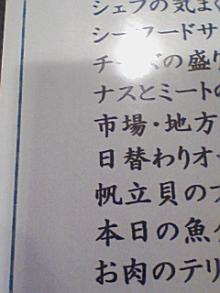 シェフの気ま
シーフードサ
チーズの盛り
ナスとミートの
市場・地方
日替わりオ
帆立貝の
本日の魚
お肉のテリ